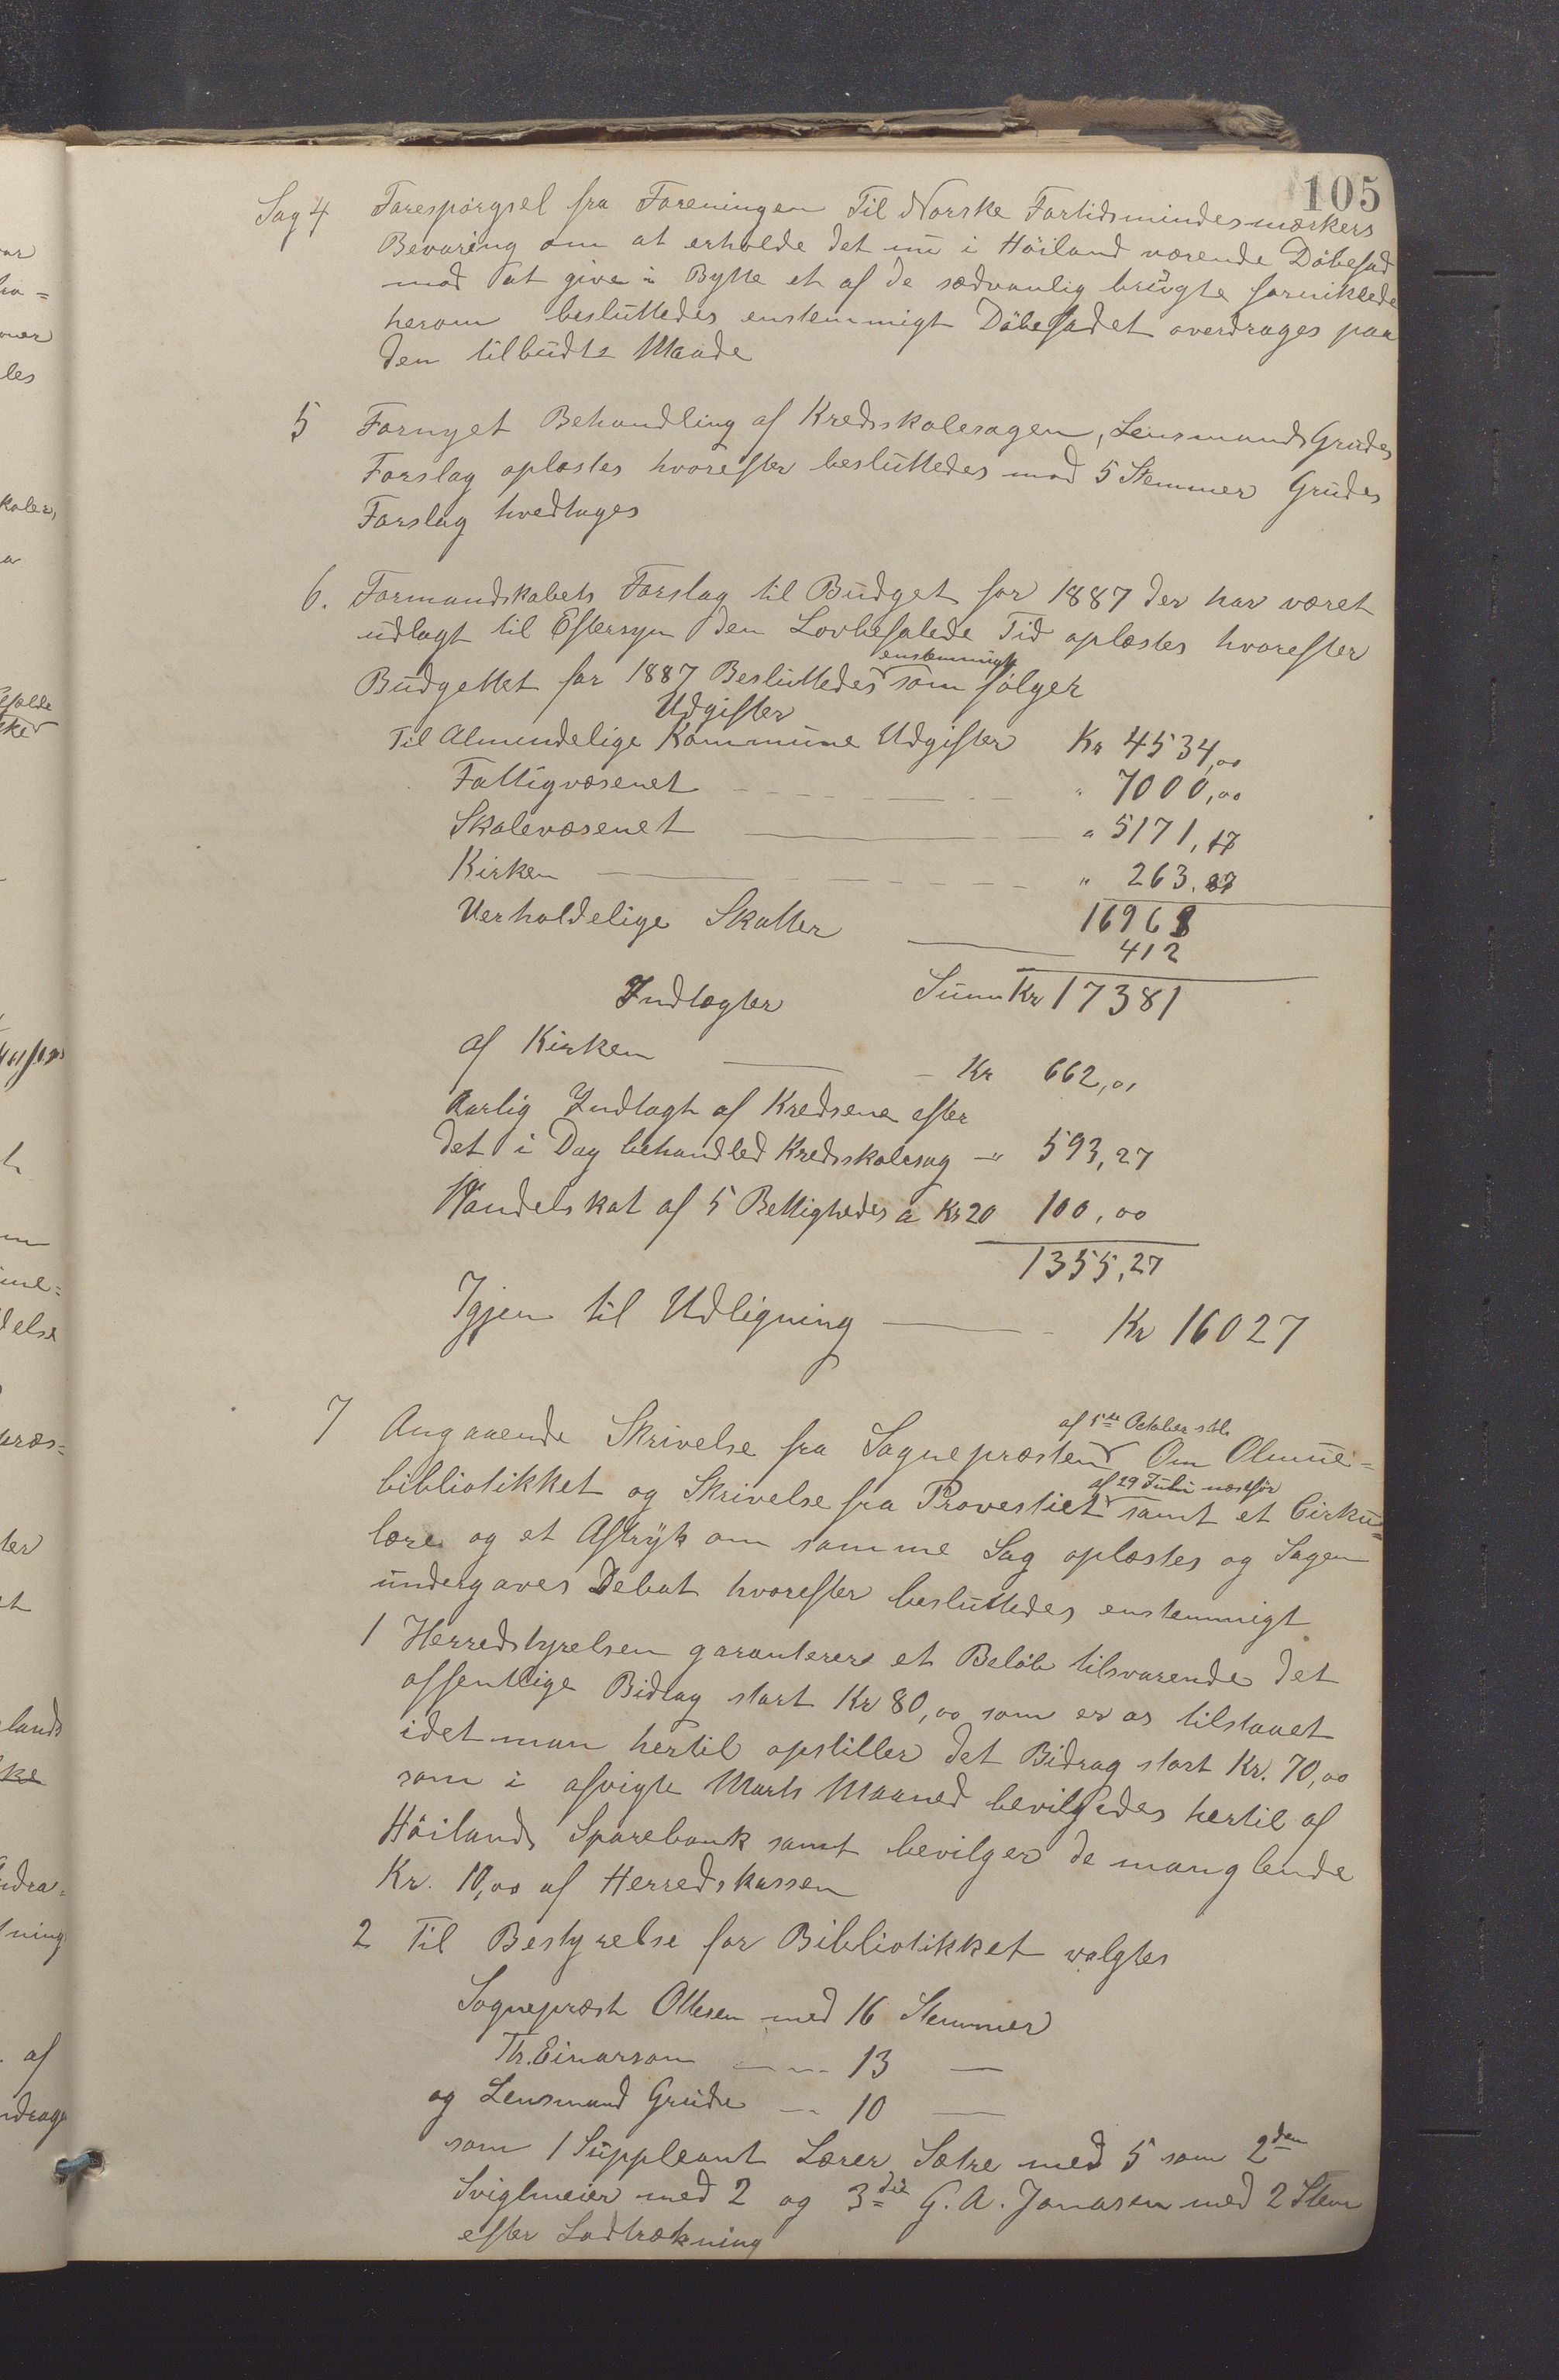 105
Sag 4 Forespörgsel fra Foreningen Til Norske Fortidsmindesmærkers
Bevaring om at erholde det nu i Höiland værende Döbefad
mod at give i Bytte et af de sædvanlig brugte forniklede
herom besluttedes enstemmigt Döbefadet overdrages paa
den tilbudte Maade
5 Fornyet Behandling af Kredsskolesagen, Lensmand Grudes
Forslag oplæstes hvorefter besluttedes mod 5 Stemmer Grudes
Forslag hvedtages
6. Formandskabets Forslag til Budget for 1887 der har været
udlagt til Eftersyn den Lovbefalede Tid oplæstes hvorefter
enstemmigt
Budgettet for 1887 Besluttedes som fölger
Udgifter
Til Almindelige Kommune Udgifter Kr 4534,00
Fattigvæsenet " 7000,00
Skolevæsenet " 5171,17
Kirken " 263.87
Uerholdelige Skatter 16968
412
Indtægter Sum Kr 17381
af Kirken Kr 662,01
Aarlig Indtægt af Kredsene efter
det i Dag behandled Kredsskolesag - " 593,27
Handelskat af 5 Bettigheder a Kr 20 100,00
1355,27
Igjen til Udligning Kr 16027
af 5te October sttl.
7 Angaaende Skrivelse fra Sognepræsten Om Olmue-
af 29 Juli næstfør
bibliotikket og Skrivelse fra Provestiet samt et Cirku-
lære og et Aftryk om samme Sag oplæstes og Sagen
undergaves Debat hvorefter besluttedes enstemmigt
1 Herredstyrelsen garanterer et Belöb tilsvarende det
offentlige Bidrag stort Kr 80,00 som er os tilstaaet
idet man hertil opstiller det Bidrag stort Kr. 70,00
som i afvigte Marts Maaned bevilgedes hertil af
Höilands Sparebank samt bevilger de manglende
Kr. 10,00 af Herredskassen
2 Til Bestyrelse for Bibliotikket valgtes
Sognepræst Ottesen med 16 Stemmer
Th. Einarson — 13 —
og Lensmand Grude — 10 —
som 1 Suppleant Lærer Sætre med 5 som 2den
Sviglmeier med 2 og 3die G. A. Jonasen med 2 Stem
efter Lodtrækning